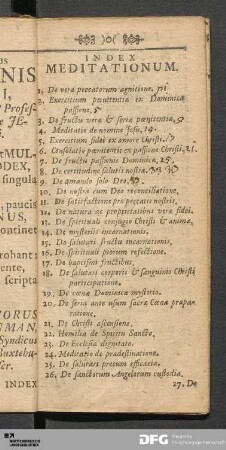 )o(
INDEX
MEDITATIONUM.
1. De vera peccatorum agnitione,
2. Exercitium pœnitentiæ ex Dominica
passione, 5
3. De fructu vera & seria pœnitentia, 9
4. Meditatio de nomine Jesu, 14.
5. Exercitium fidei ex amore Christi,
6. Consolatio pœnitentis ex passione Christi, 21.
7. De fructu passionis Dominicæ, 25.
8. De certitudine salutis nostræ,
9. De amando solo Deo.
10. De nostra cum Deo reconciliatione,
11. De satisfactione pro peccatis nostris,
12. De natura ac proprietatibus veræ fidei.
13. De spirituali conjugio Christi & animæ,
14. De mysteriis incarnationis,
15. De salutari fructu incarnationis,
16. De spirituali piorum refectione.
17. De baptismi fructibus,
18. De salutari corporis & sanguinis Christi
participatione.
19. De cœna Dominica mysterio.
20. De seria ante usum sacræ Cœnæ præpa-
ratione,
21. De Christi ascensione,
22. Homilia de Spiritu Sancto,
23. De Ecclesiæ dignitate,
24. Meditatio de prædestinatione,
25. De salutari precum efficacia,
26. De sanctorum Angelorum custodia,
27. De
us
NIS
I,
Profes-
JE-
MUL-
DEX,
singula
, paucis
NUS,
ontinet
robant:
ente,
scripta
ORUS
MAN,
Syndicus
Buxtehu-
INDEX
DFG